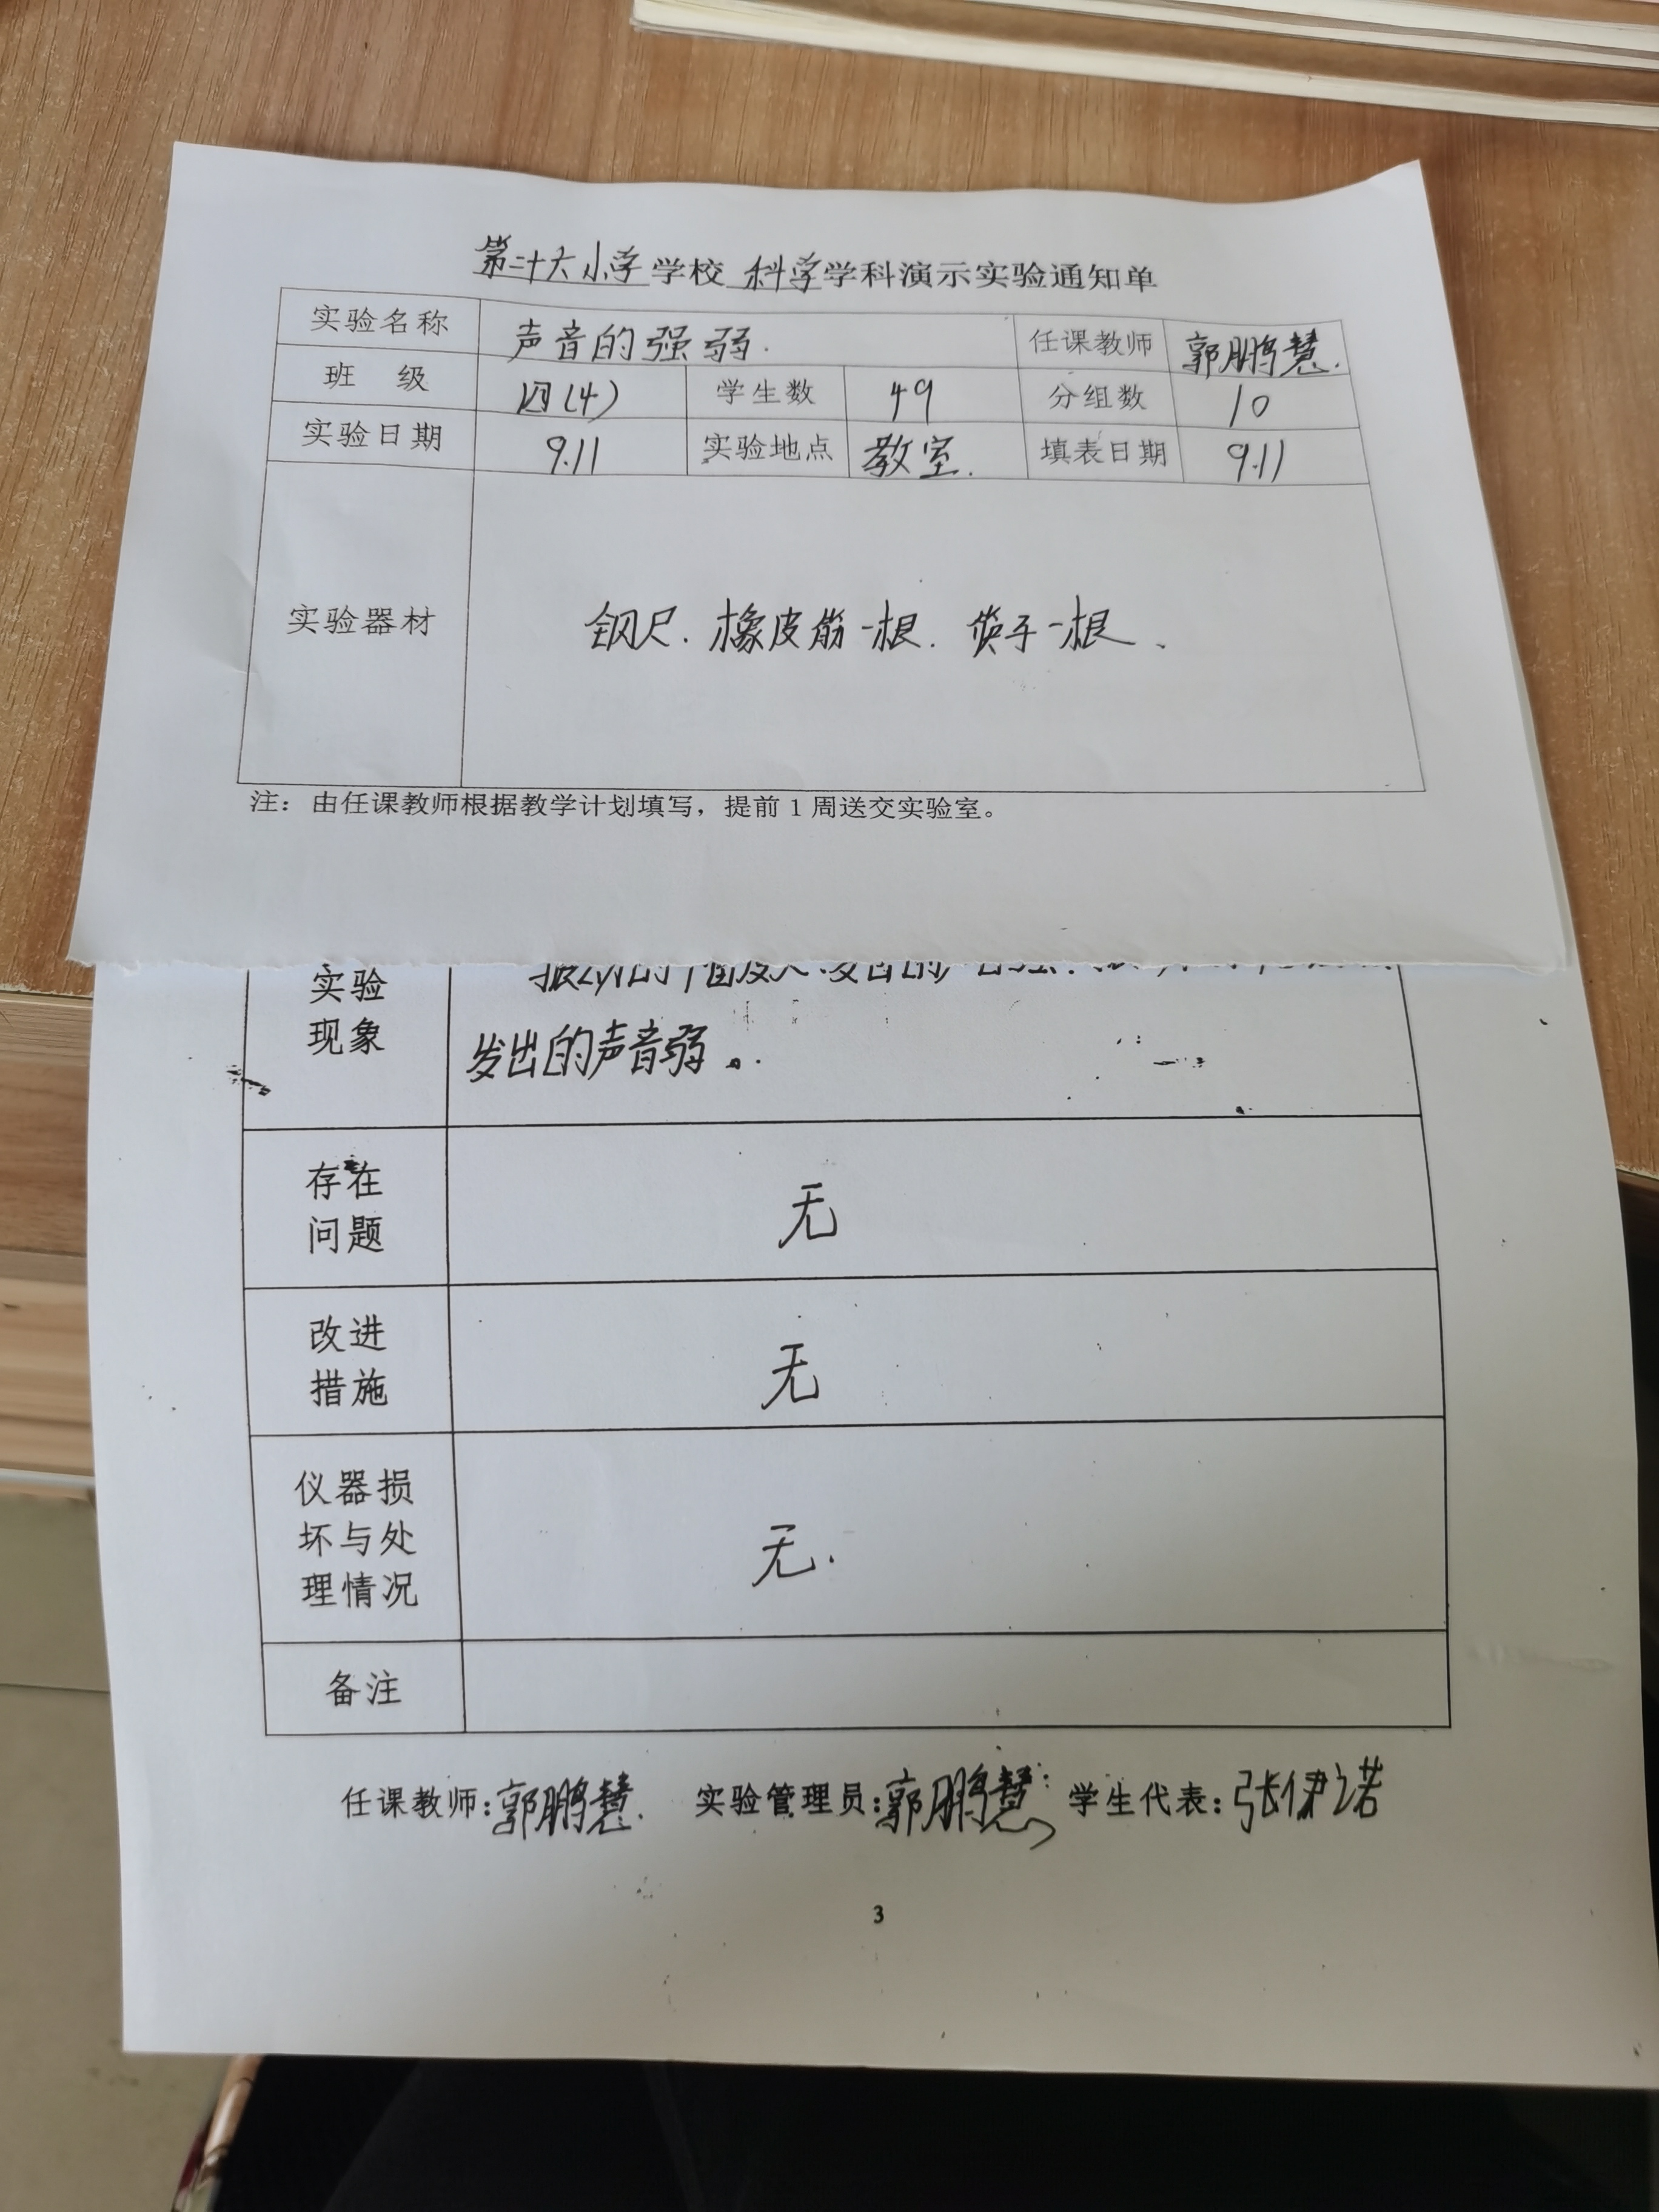 第二十六小学学校 科学学科演示实验通知单
实验名称 声音的强弱. 任课教师 郭鹏慧.
班 级 四(4) 学生数 49 分组数 10
实验日期 9.11 实验地点 教室. 填表日期 9.11
实验器材 钢尺. 橡皮筋一根. 筷子一根、
注：由任课教师根据教学计划填写，提前1周送交实验室。
实验
现象
发出的声音弱。
存在
问题
无
改进
措施
无
仪器损
坏与处
理情况
无.
备注
任课教师:郭鹏慧. 实验管理员:郭鹏慧 学生代表:张伊诺
3